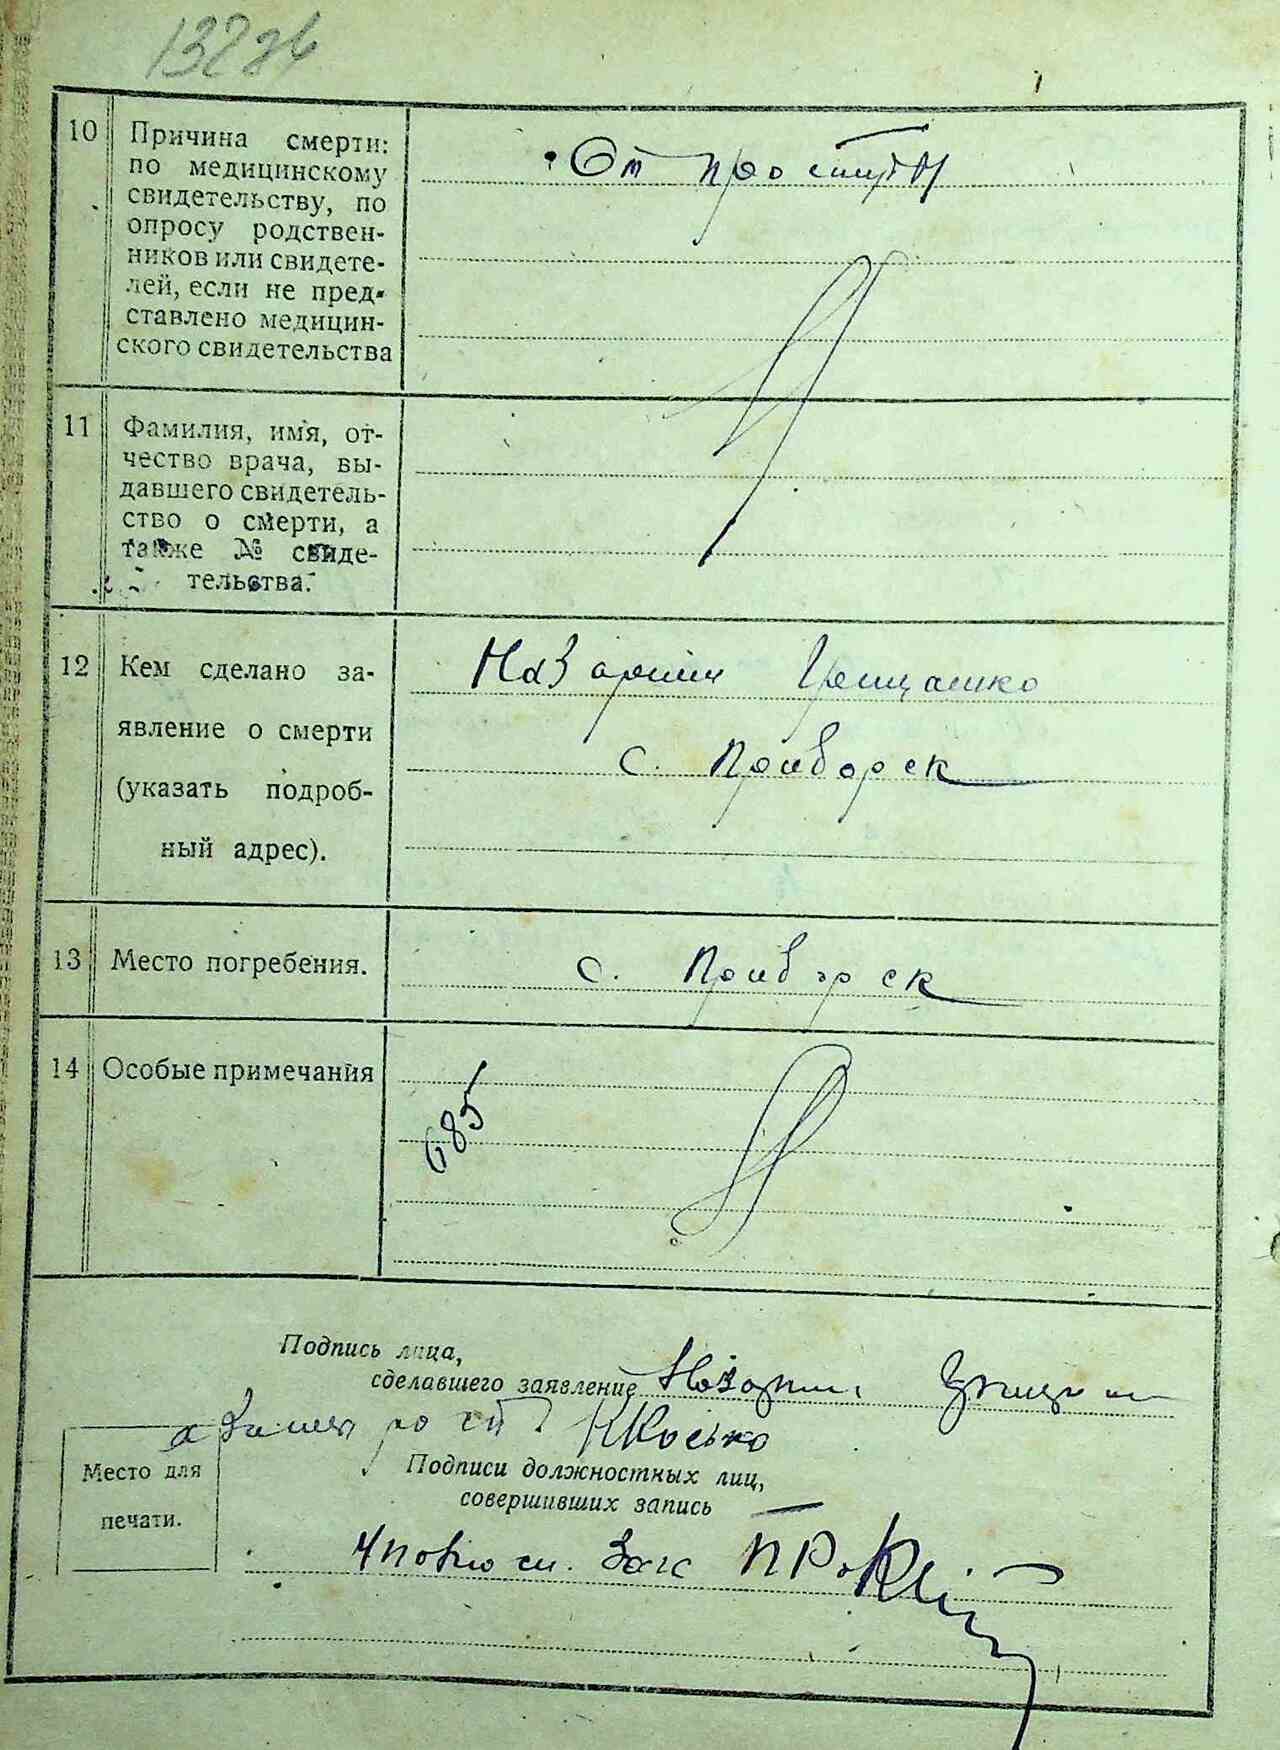 10 Причина смерти:
по медицинскому
свидетельству, по
опросу родствен-
ников или свидете-
лей, если не пред-
ставлено медицин-
ского свидетельства
От простуты
11 Фамилия, имя, от-
чество врача, вы-
давшего свидетель-
ство о смерти, а
также № свиде-
тельства.
12 Кем сделано за-
явление о смерти
(указать подроб-
ный адрес).
Назарчик
с. Приборск
13 Место погребения.
с. Приборск
14 Особые примечания
685
Подпись лица,
сделавшего заявление
Подписи должностных лиц,
совершивших запись
Место для
печати.
Загс